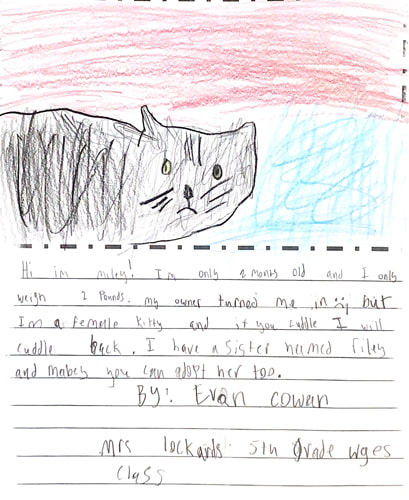 Hi im miley! I'm only 2 months old and I only
weigh 2 Pounds. my owner turned me in :( but
I'm a female kitty and if you cuddle I will
cuddle back. I have a sister named riley
and mabey you can adopt her too.
By: Evan cowan
Mrs lockards 5th Grade wges
class